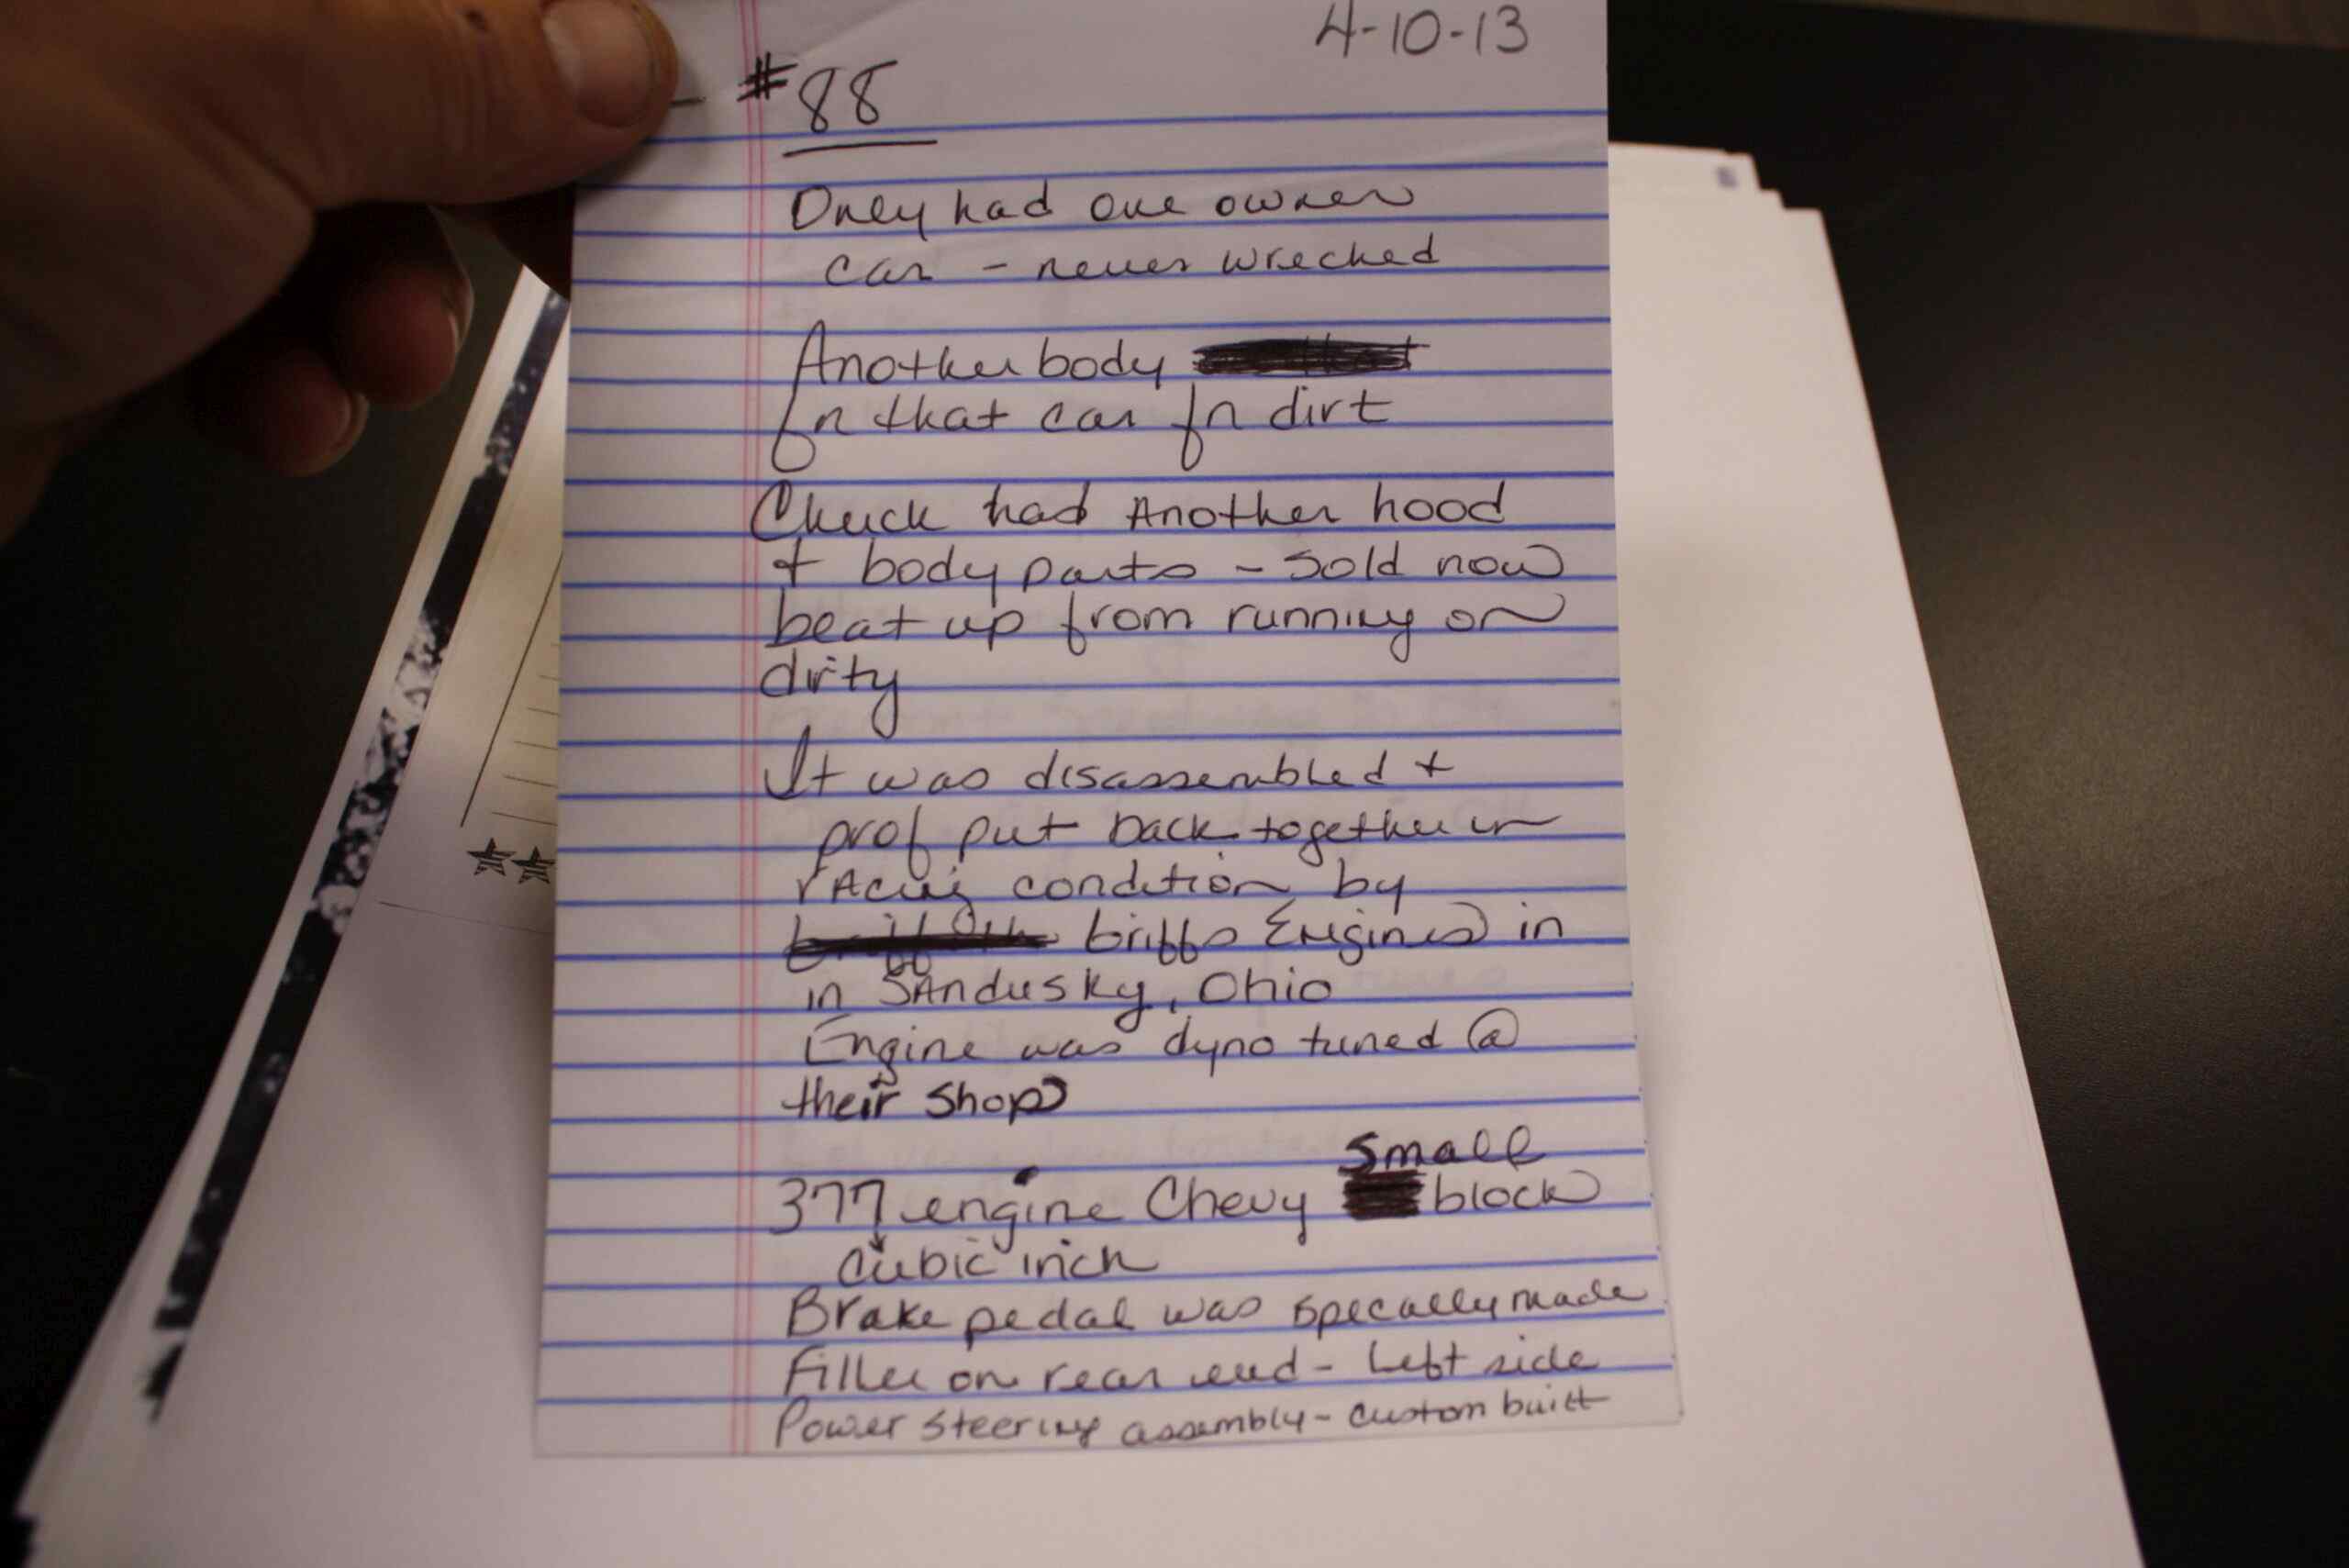 4-10-13
#88
Only had one owner
car - never wrecked
Another body
for that car for dirt
Chuck had Another hood
+ body parts - sold now
beat up from running on
dirty
It was disassembled +
prof put back together in
rAcing condition by
briffs Engines in
in SAndusky, Ohio
Engine was dyno tuned @
their shop
Small
377 engine Chevy block
cubic inch
Brake pedal was specally made
Filler on rear end - Left side
Power steering assembly - custom built